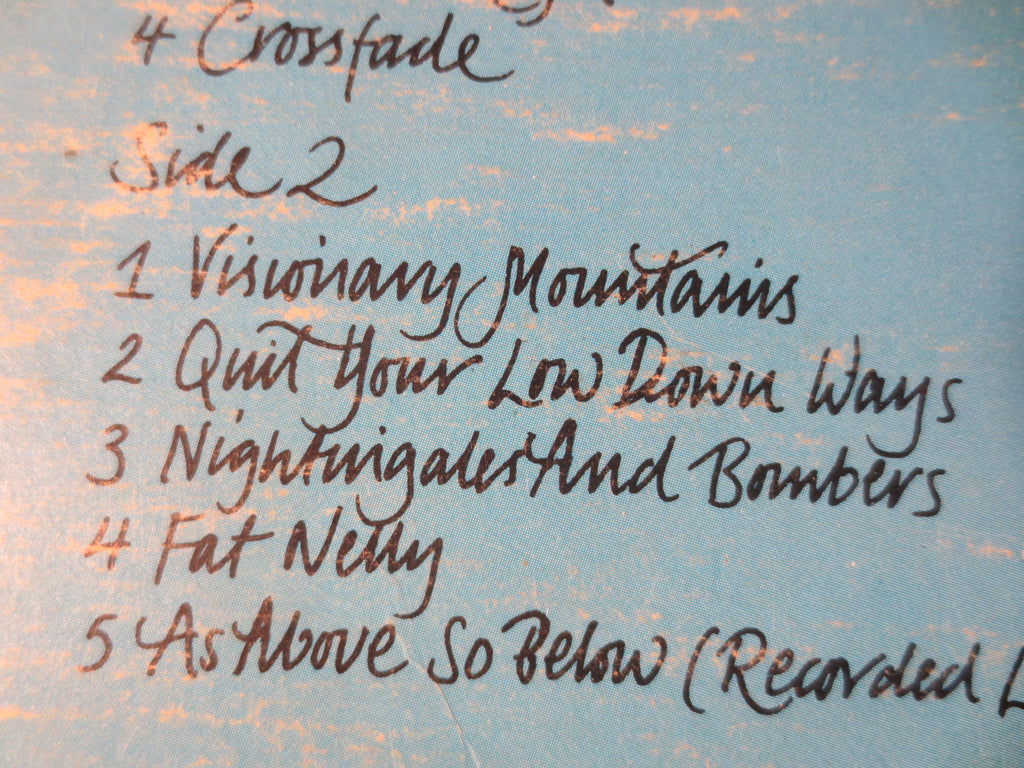 4 Crossfade
Side 2
1 Visionary Mountains
2 Quit Your Low Down Ways
3 Nightingales And Bombers
4 Fat Nelly
5 As Above So Below (Recorded L